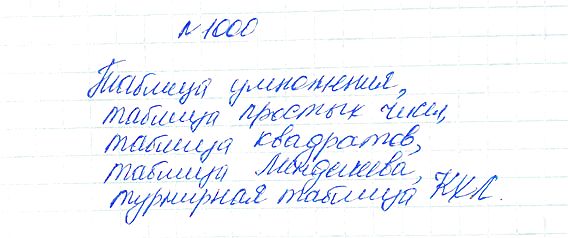 №1000
Таблица умножения,
таблица простых чисел,
таблица квадратов,
таблица Менделеева,
турнирная таблица КХЛ.